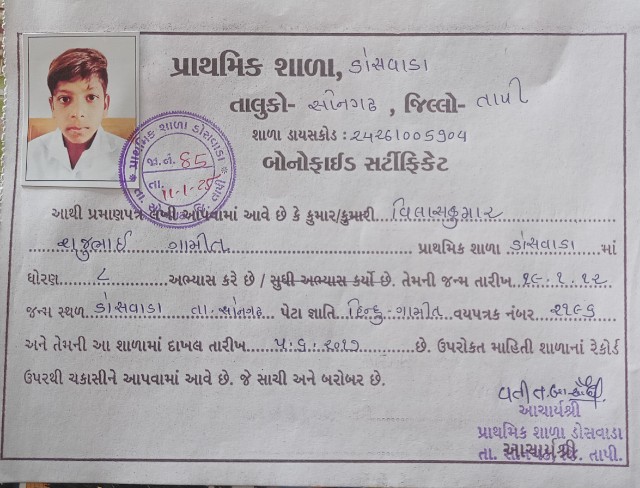 પ્રાથમિક શાળા, ડોસવાડા
તાલુકો- સોનગઢ , જિલ્લો- તાપી
શાળા ડાયસકોડ : 24261005904
બોનોફાઈડ સર્ટીફિકેટ
પ્રાથમિક શાળા ડોસવાડા
જા.નં. 85
તા.
આથી પ્રમાણપત્ર લખી આપવામાં આવે છે કે કુમાર/કુમારી વિલાસકુમાર
રાજુભાઈ ગામીત પ્રાથમિક શાળા ડોસવાડા માં
ધોરણ ૮ અભ્યાસ કરે છે / સુધી અભ્યાસ કર્યો છે. તેમની જન્મ તારીખ ૧૯.૧.૧૨
જન્મ સ્થળ ડોસવાડા તા. સોનગઢ પેટા જ્ઞાતિ હિન્દુ-ગામીત વયપત્રક નંબર ૨૧૯૬
અને તેમની આ શાળામાં દાખલ તારીખ ૫.૬.૨૦૧૭ છે. ઉપરોકત માહિતી શાળાનાં રેકોર્ડ
ઉપરથી ચકાસીને આપવામાં આવે છે. જે સાચી અને બરોબર છે.
આચાર્યશ્રી
પ્રાથમિક શાળા ડોસવાડા
તા. સોનગઢ જી. તાપી.
આચાર્યશ્રી